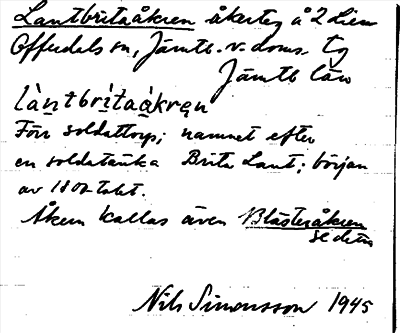 Lantbritaåkren åkerteg å 2 Lien
Offerdals sn, Jämtl. v. doms. tg
Jämtl län
làntbrìtaàkręn
Förr soldattorp; namnet efter
en soldatänka Brita Lant; början
av 1800 talet.
Åkern kallas även Blästeråkren
se detta
Nils Simonsson 1945